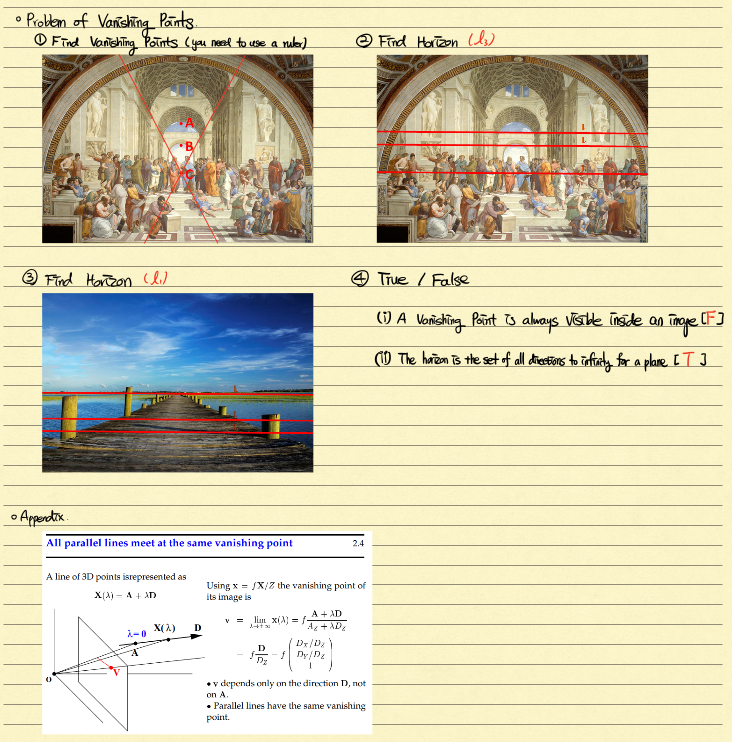 ◦ Problem of Vanishing Points.
① Find Vanishing Points (you need to use a ruler)
A
B
C
② Find Horizon (l₃)
③ Find Horizon (l₁)
④ True / False
(i) A Vanishing Point is always visible inside an image [F]
(ii) The horizon is the set of all directions to infinity for a plane [T]
◦ Appendix.
All parallel lines meet at the same vanishing point 2.4
A line of 3D points isrepresented as
X(λ) = A + λD
λ=0 X(λ) D
A
O
V
Using x = fX/Z the vanishing point of
its image is
v = lim λ→+∞ x(λ) = f (A + λD)/(A_Z + λD_Z)
= f D/D_Z = f (D_X/D_Z
D_Y/D_Z
1)
• v depends only on the direction D, not
on A.
• Parallel lines have the same vanishing
point.